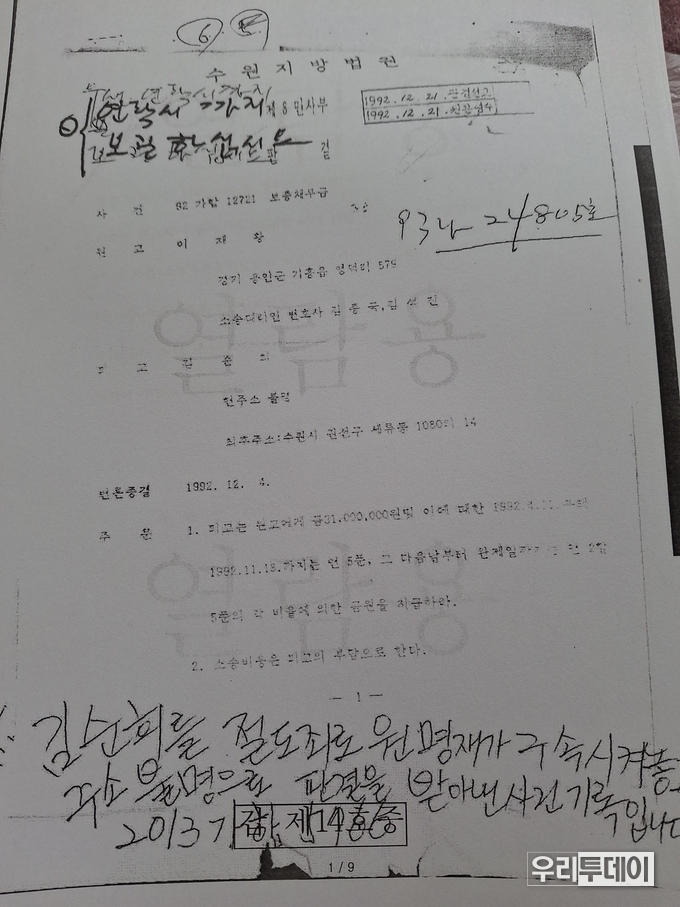 6
수원지방법원
제8민사부
1992. 12. 21. 판결선고
1992. 12. 21. 원본영수
판 결
사 건 92 가합 12721 보증채무금
93나 24805호
원 고 이 재 황
경기 용인군 기흥읍 영덕리 579
소송대리인 변호사 김
피 고 김 순 희
현주소 불명
최후주소:수원시 권선구 세류동 1080의 14
변론종결 1992. 12. 4.
주 문 1. 피고는 원고에게 금31,000,000원및 이에 대한 1992.4.11.부터
1992.11.18.까지는 연 5푼, 그 다음날부터 완제일까지는 연 2할
5푼의 각 비율에 의한 금원을 지급하라.
2. 소송비용은 피고의 부담으로 한다.
- 1 -
김순희를 절도죄로 원명재가 구속시켜놓
주소 불명으로 판결을 받아낸 사건기록입니다
2013가합 제14호증
열람용
열람용
1/9
우리투데이